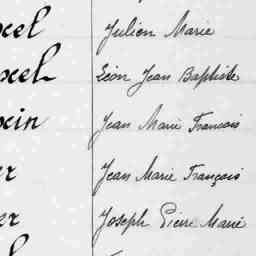 xel Julien Marie
xel Léon Jean Baptiste
xin Jean Marie Francois
er Jean Marie François
er Joseph Pierre Marie